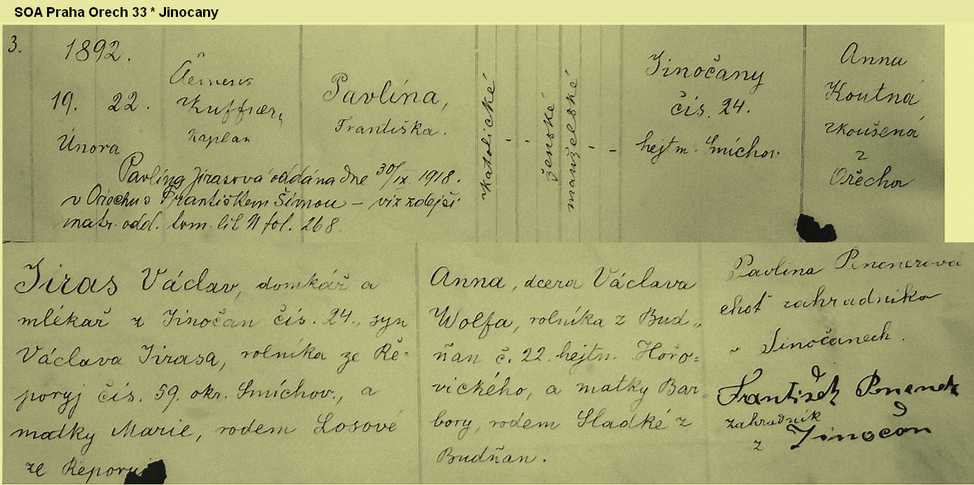 SOA Praha Orech 33 * Jinocany
3.
1892.
19. 22.
Února
Kuffner,
kaplan
Pavlína,
Františka.
katolické
ženské
manželské
Jinočany
čís. 24.
hejtm. Smíchov.
Anna
Koutná
zkoušená
z
Ořecha
Pavlína Jirasova oddána dne 30/IX 1918.
v Ořechu s Františkem Šimou – viz zdejší
matr. odd. tom. lit. fol. 268.
Jiras Václav, domkář a
mlékař z Jinočan čís. 24., syn
Václava Jirasa, rolníka ze Ře-
poryj čís. 59. okr. Smíchov., a
matky Marie, rodem Losové
ze Řeporyj
Anna, dcera Václava
Wolfa, rolníka z Bud-
ňan č. 22. hejtm. Hořo-
vického, a matky Bar-
bory, rodem Sladké z
Budňan.
Pavlína
choť zahradníka
v Jinočanech.
František
zahradník
z Jinočan